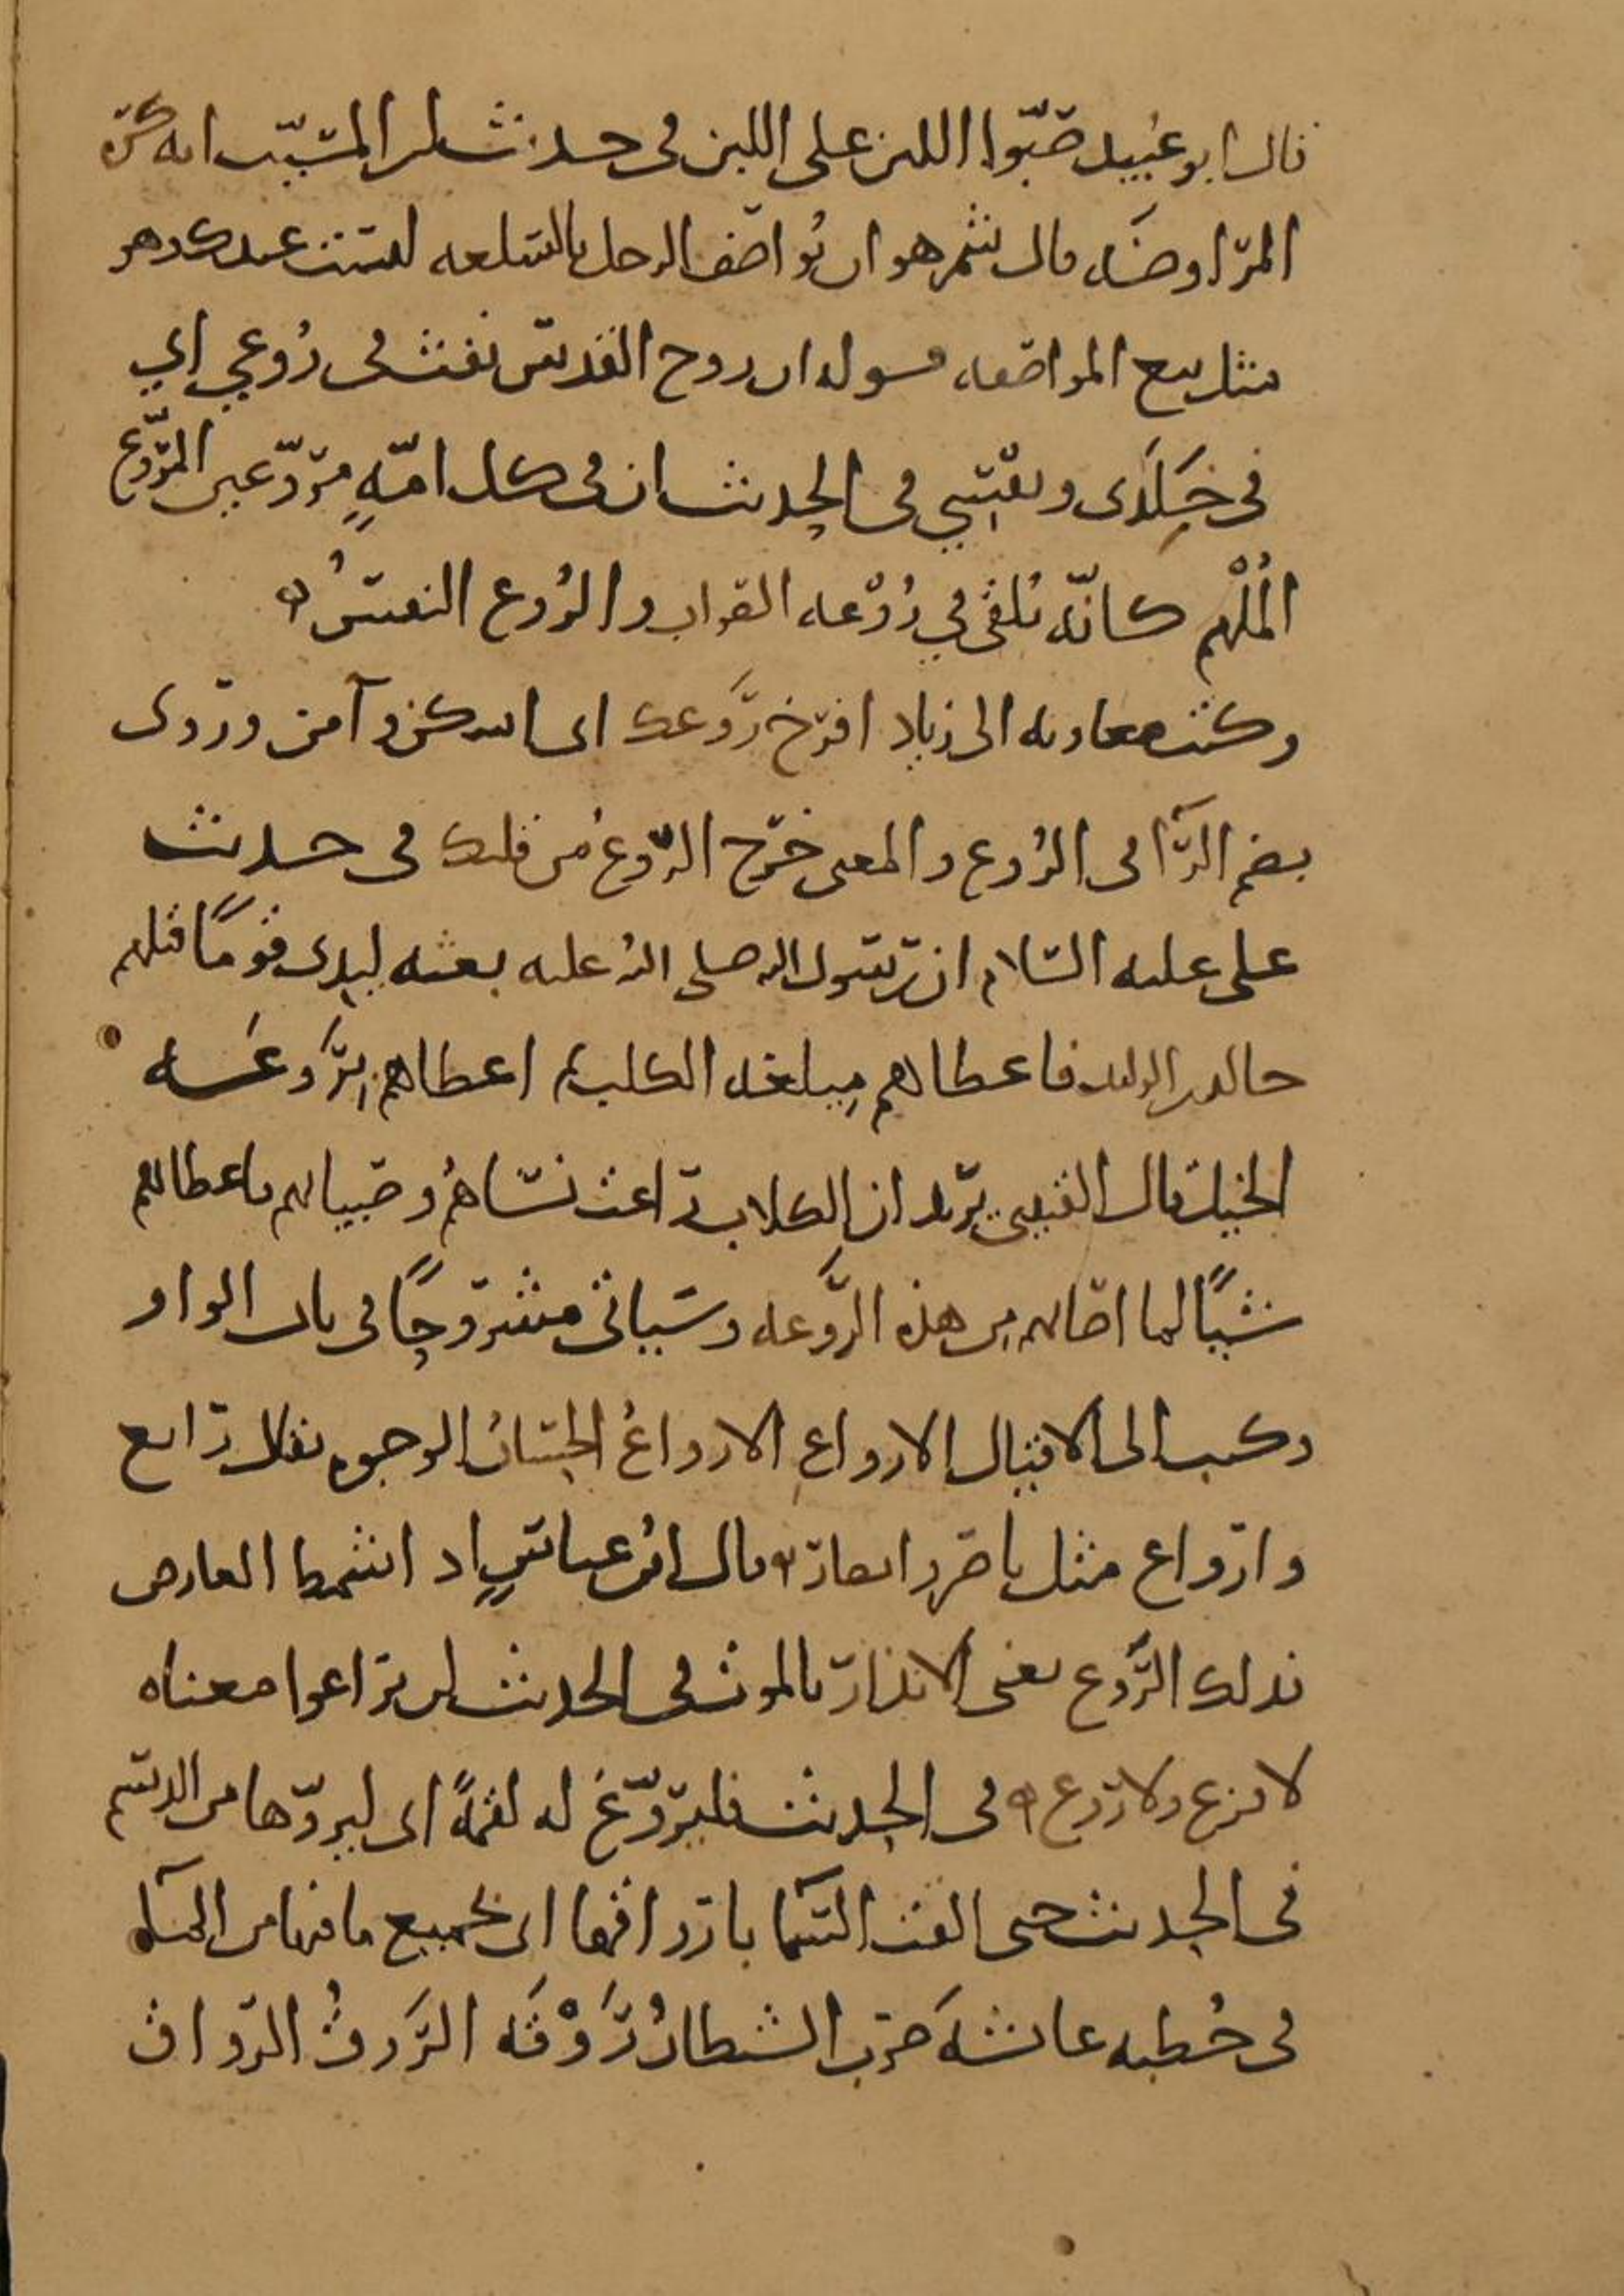 قال ابو عُبيد صَبّوا اللبن على اللبن فى حديث ابن المسَيّب انه كَرِه
المرَاوضَه قال شمر هو ان تُواصف الرجل بالسلعه ليست عندك وهو
مثل بيع المواصفه قوله ان روح القدس نفث فى رُوعي اي
فى خَلَدى ونفسِي فى الحديث ان فى كل امّةٍ مروَّعين المروَّع
المُلْهم كانّه يُلقى في رُوْعه الصواب والرُوع النفسُ
وكتب معاويه الى زياد افرَخ رَوعك اى اسكن وآمن وروى
بضم الرآ فى الرُوع والمعنى خرَج الرَّوعُ من قلبك فى حديث
على عليه السلام ان رسول الله صلى الله عليه بعثه ليدى قومًا قتلهم
خالد بن الوليد فاعطاهم مِيلغه الكلب ثم اعطاهم بِرَوعَه
الخيل قال القتيبي يريد ان الخيل راعت نساءَهُم وصبيانهم فاعطاهم
شيًا لما اصابهم من هذه الرَّوعه وسياتى مشروحًا فى باب الواو
وكتب الى الاقيال الارواع الارواعُ الحِسَانُ الوجوه يقال رايع
وارواع مثل ناصر وانصار قال ابنُ عباسٍ اذا شمط العارض
فذلك الرَّوع يعنى الانذار بالموت فى الحديث لن تراعوا معناه
لا فزع ولا رَوع فى الحديث فليروّغ له لقمةً اى ليروّها من الدسم
فى الحديث حتى القت السمآ باروَاقها اى بجميع ما فيها من المآء
فى خُطبه عائشهَ ضرَب الشيطانُ رَوْقَه الرَّوقُ الرواق